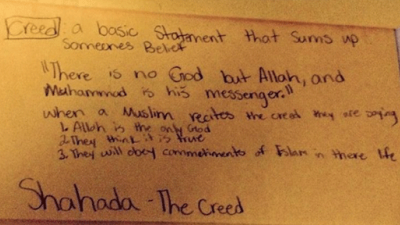 Creed: a basic Statment that sums up
someones Belief
"There is no God but Allah, and
Muhammad is his messenger."
when a Muslim recites the creed they are saying
1. Allah is the only God
2. They think it is true
3. They will obey commetments of Islam in there life
Shahada - The Creed